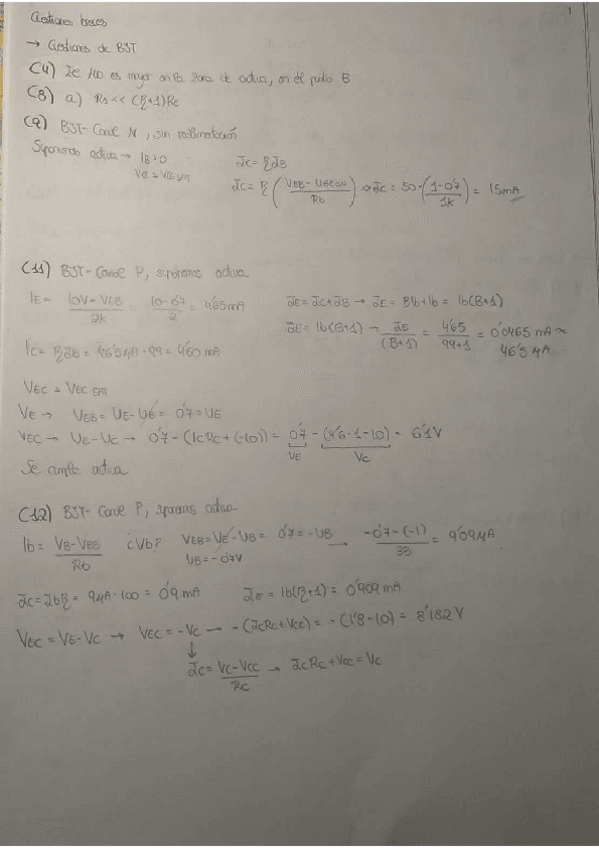 1
Cuestiones breves
→ Cuestiones de BJT
C4) Ic/IB es mayor en la zona de activa, en el punto B
C8) a) RB << (β+1)Re
C9) BJT- Canal N, sin realimentación
Suponemos activa → IB > 0
VCE > VCE SAT
Ic = βIB
Ic = β (VBB - VBEON / Rb) → Ic = 50·(1-0'7 / 1k) = 15mA
C11) BJT- Canal P, suponemos activa
IE = 10V - VEB / 2k = 10-0'7 / 2 = 4'65mA
IE = Ic + IB → IE = βIb + Ib = Ib(β+1)
IE = Ib(β+1) → IE / (β+1) = 4'65 / 99+1 = 0'0465 mA ∝
46'5 µA.
Ic = βIb = 46'5µA · 99 = 4'60 mA
VEC > VEC SAT
VE → VEB = VE - VB = 0'7 = VE
VEC → VE - VC → 0'7 - (IcRc + (-10)) = 0'7 - (4'6·1-10) = 6'1V
VE
VC
Se cumple activa
C12) BJT- Canal P, suponemos activa
Ib = VB - VBB / Rb
¿Vb?
VEB = VE - VB = 0'7 = -VB
VB = -0'7V
-0'7-(-1) / 33 = 9'09µA
Ic = Ibβ = 9µA · 100 = 0'9 mA
IE = Ib(β+1) = 0'909 mA
VEC = VE - VC → VEC = -VC → -(IcRc + VCC) = -(1'8-10) = 8'182 V
↓
Ic = VC - VCC / Rc → IcRc + VCC = VC